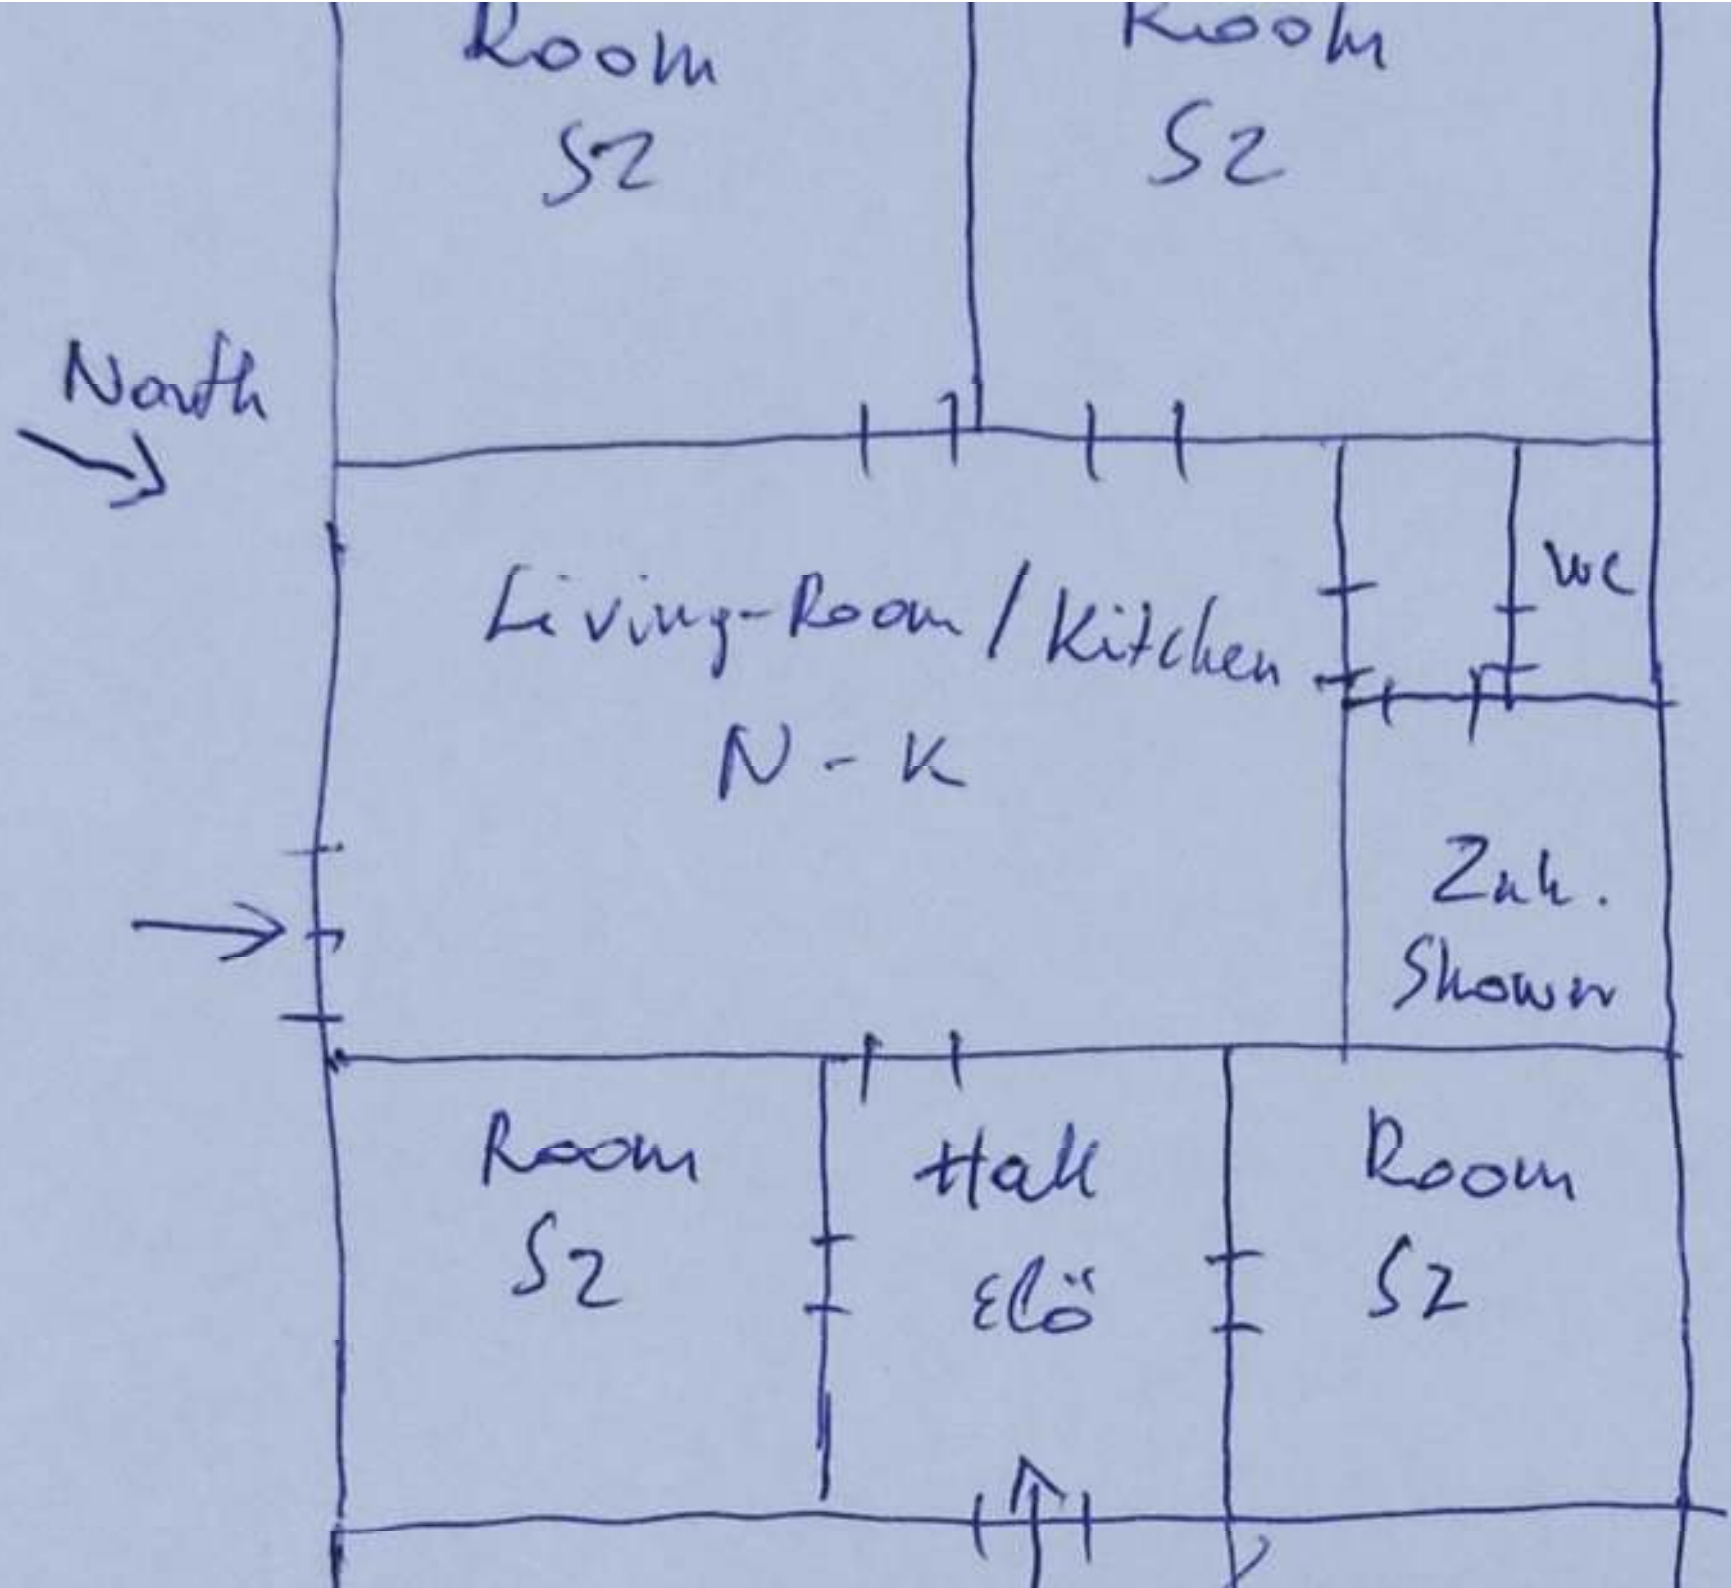 Room
S2
Room
S2
North
Living-Room / Kitchen
N - K
WC
Zuh.
Shower
Room
S2
Hall
Elő
Room
S2